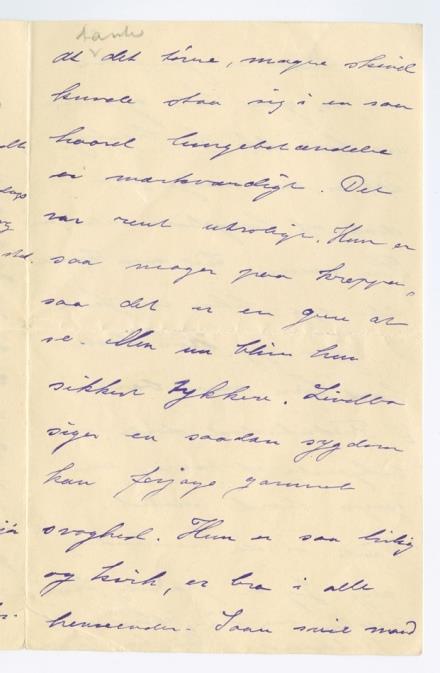 tanke
at det tørre, magre skind
kunde staa sig i en saa
haard lungebetændelse
er mærkværdigt. Det
var rent utroligt. Hun er
saa mager paa kroppen,
saa det er en gru at
se. Men nu bliver hun
sikkert tykkere.
siger en saadan sygdom
kan forjage gammel
svaghed. Hun er saa livlig
og kvik, er bra i alle
henseender.